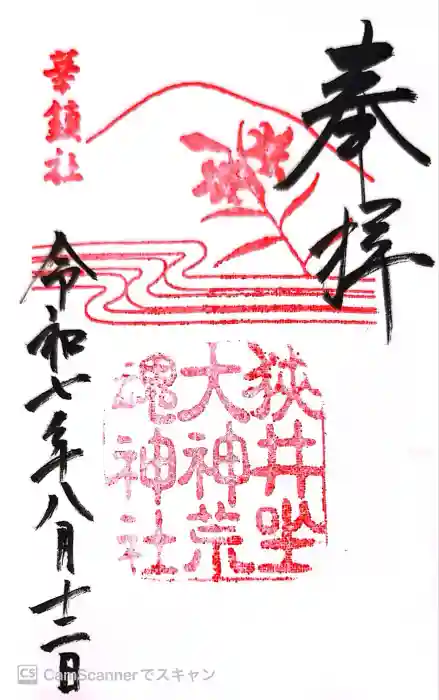 奉拝
華鎮社
狭井坐
大神荒
魂神社
令和七年八月十二日
CS CamScannerでスキャン